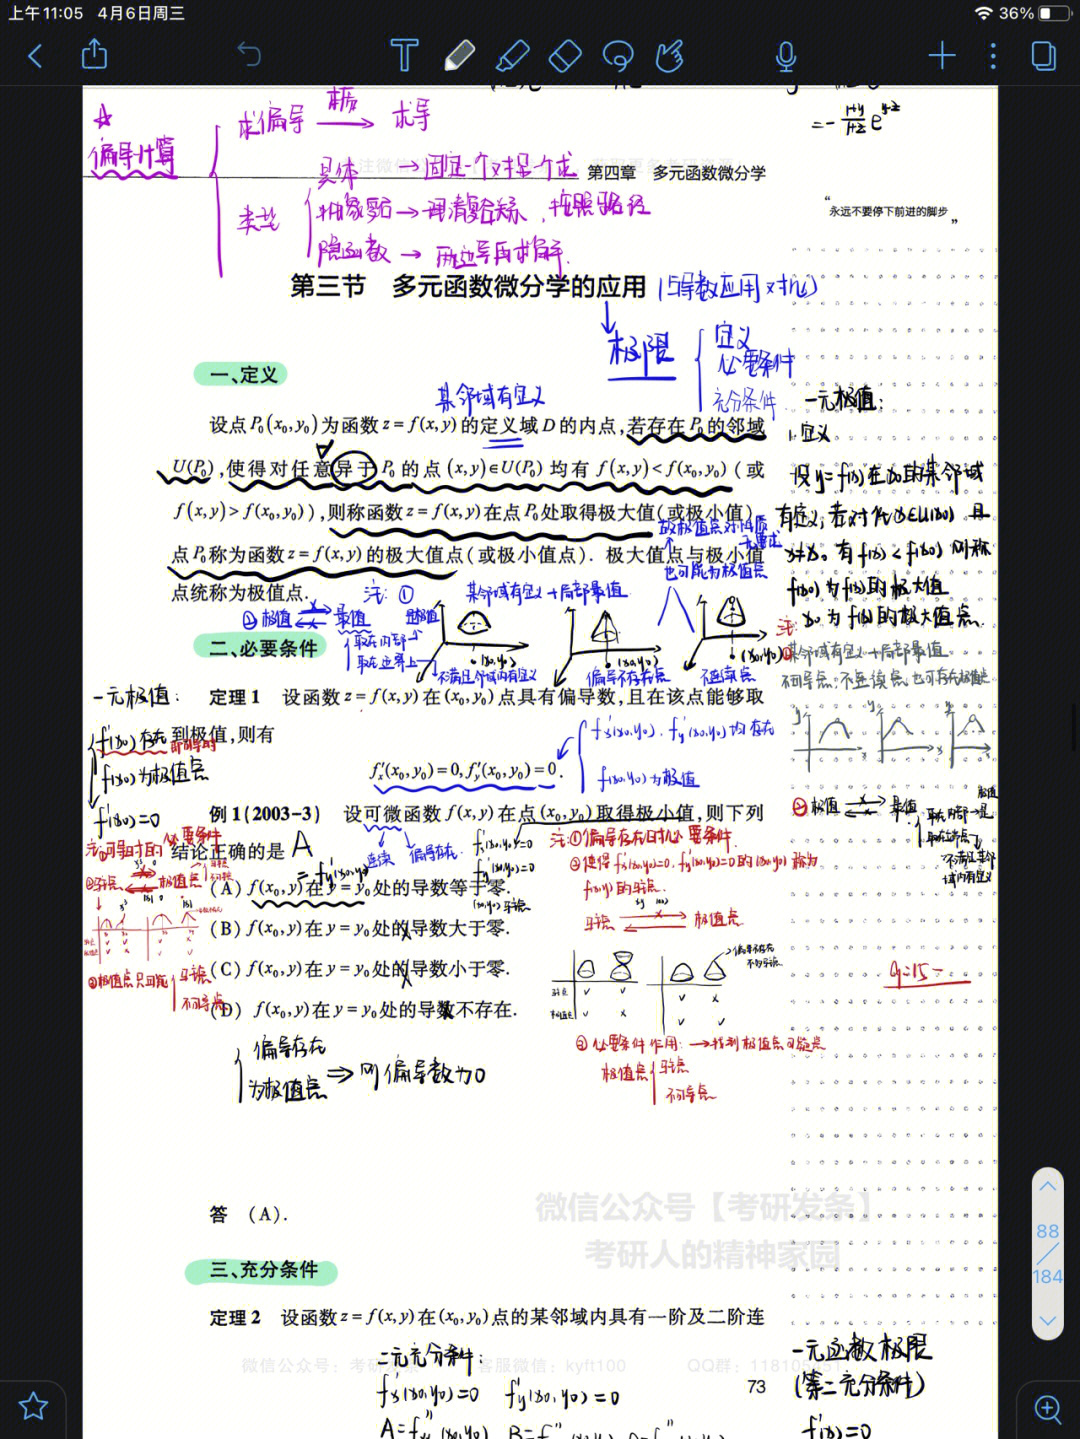 上午11:05 4月6日周三
36%
偏导计算
求偏导 → 求导
类型
具体 → 固定一个对另一个求
隐函数 → 两边导再求偏导
= - (1+y)/(1+z) e^(y-z)
第四章 多元函数微分学
“永远不要停下前进的脚步”
第三节 多元函数微分学的应用 (与导数应用对比)
极限
定义
必要条件
充分条件
一、定义
某邻域有定义
设点P₀(x₀,y₀)为函数z=f(x,y)的定义域D的内点,若存在P₀的邻域
U(P₀),使得对任意异于P₀的点(x,y)∈U(P₀)均有f(x,y)<f(x₀,y₀)(或
f(x,y)>f(x₀,y₀)),则称函数z=f(x,y)在点P₀处取得极大值(或极小值),
点P₀称为函数z=f(x,y)的极大值点(或极小值点). 极大值点与极小值
点统称为极值点.
也可能为极值点
注:①
某邻域有定义→局部最值
② 极值 最值
取在内部→
取在边界上→
不满足邻域内有定义
偏导不存在点
不连续点
一元极值:
1.定义
设y=f(x)在x₀的某邻域
有定义,若对∀x∈U(x₀)且
x≠x₀,有f(x)<f(x₀)则称
f(x₀)为f(x)的极大值
x₀为f(x)的极大值点.
注:
①某邻域有定义→局部最值
不可导点,不连续点也可存在极值点
② 极值 最值
二、必要条件
一元极值:
定理1 设函数z=f(x,y)在(x₀,y₀)点具有偏导数,且在该点能够取
到极值,则有
f'(x₀)存在
f(x₀)为极值点
f'(x₀)=0
f'ₓ(x₀,y₀)=0,f'ᵧ(x₀,y₀)=0.
f'ₓ(x₀,y₀),f'ᵧ(x₀,y₀)均存在
f(x₀,y₀)为极值
例1(2003-3) 设可微函数f(x,y)在点(x₀,y₀)取得极小值,则下列
结论正确的是 A
连续 偏导存在
f'ₓ(x₀,y₀)=0
f'ᵧ(x₀,y₀)=0
(x₀,y₀)驻点
= f'ᵧ(x₀,y₀)
(A) f(x₀,y)在y=y₀处的导数等于零.
(B) f(x₀,y)在y=y₀处的导数大于零.
(C) f(x₀,y)在y=y₀处的导数小于零.
(D) f(x₀,y)在y=y₀处的导数不存在.
注:①可导时的必要条件
②驻点 极值点
③极值点只可能
驻点
不可导点
注:①偏导存在时必要条件
②使得f'ₓ(x₀,y₀)=0,f'ᵧ(x₀,y₀)=0的(x₀,y₀)称为
f(x,y)的驻点.
驻点 极值点
偏导不存在
不为驻点
③必要条件作用:→找到极值点可疑点
极值点
驻点
不可导点
偏导存在
为极值点
⇒ 则偏导数为0
答 (A).
微信公众号【考研发条】
考研人的精神家园
三、充分条件
定理2 设函数z=f(x,y)在(x₀,y₀)点的某邻域内具有一阶及二阶连
二元充分条件:
微信公众号:考研发条
客服微信:kyft100
QQ群:118105451
f'ₓ(x₀,y₀)=0 f'ᵧ(x₀,y₀)=0
73
一元函数极限
(第二充分条件)
f'(x₀)=0
88
184